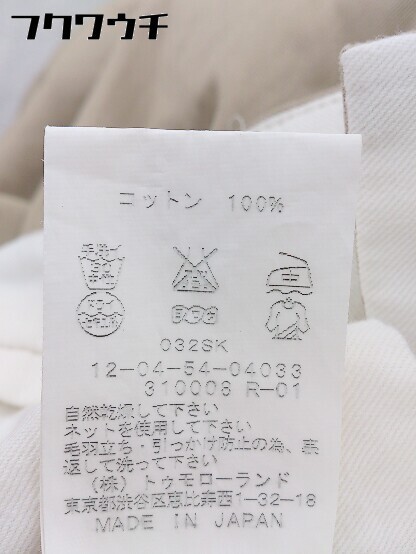 フクワウチ
コットン 100%
032SK
12-04-54-04033
310008 R-01
自然乾燥して下さい
ネットを使用して下さい
毛羽立ち・引っかけ防止の為、裏
返して洗って下さい
(株) トゥモローランド
東京都渋谷区恵比寿西1-32-18
MADE IN JAPAN